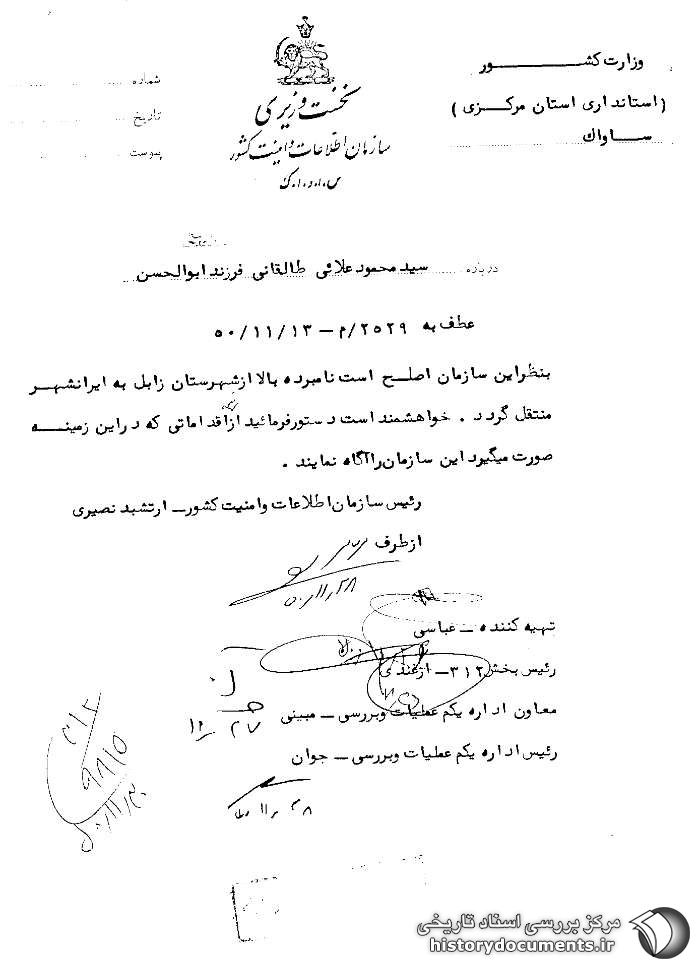 وزارت کشــــــــور
(استانداری استان مرکزی)
ســـاواک
نخست وزیری
سازمان اطلاعات و امنیت کشور
س.ا.و.ا.ک
شماره
تاریخ
پیوست
درباره سید محمود علائی طالقانی فرزند ابوالحسن
عطف به ۲۵۲۹/م – ۵۰/۱۱/۱۳
بنظر این سازمان اصلــح است نامبرده بالا از شهرستان زابل به ایرانشهــر
منتقل گردد . خواهشمند است دستور فرمائید از اقداماتی که در این زمینــه
صورت میگیرد این سازمان را آگاه نمایند .
رئیس سازمان اطلاعات و امنیت کشور – ارتشبد نصیری
از طرف
۵۰/۱۱/۲۸
تهیه کننده – عباسی
رئیس بخش ۳۱۲ – ازغندی
معاون اداره یکم عملیات و بررسی – مبینی
رئیس اداره یکم عملیات و بررسی – جوان
۳۱۲
مرکز بررسی اسناد تاریخی
historydocuments.ir